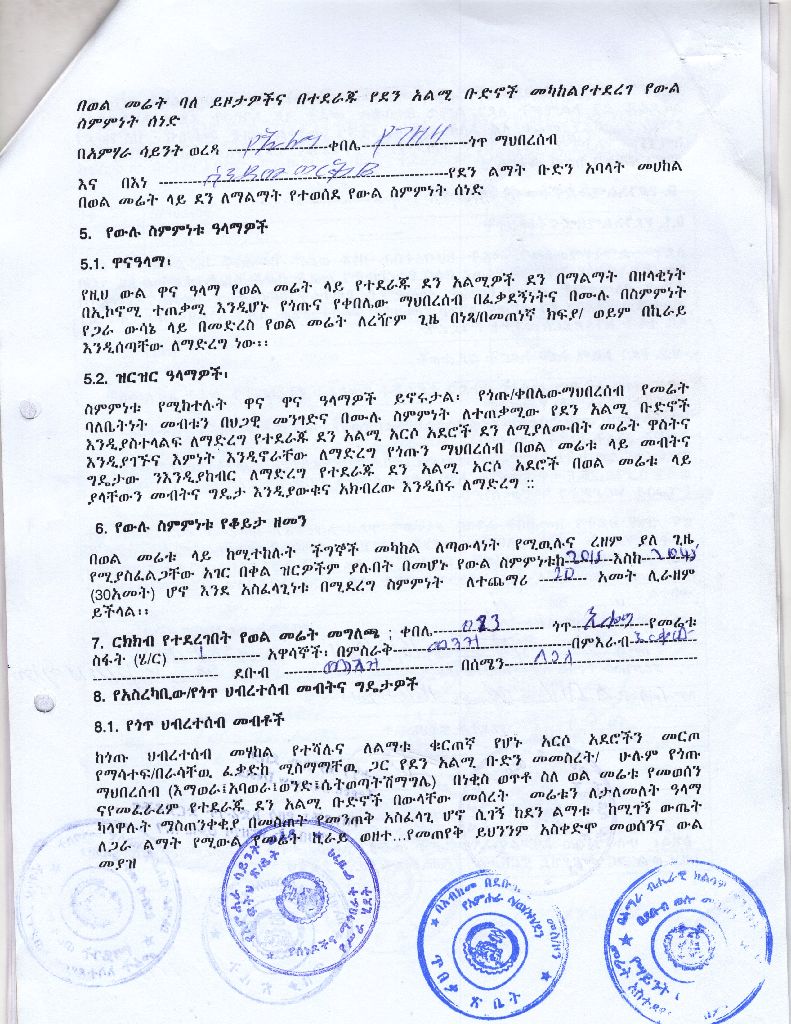 በወል መሬት ባለ ይዞታዎችና በተደራጁ የደን አልሚ ቡድኖች መካከልየተደረገ የውል
ስምምነት ሰነድ
በአምሃራ ሳይንት ወረዳ ቀበሌ ጎጥ ማህበረሰብ
እና በእነ የደን ልማት ቡድን አባላት መሀከል
በወል መሬት ላይ ደን ለማልማት የተወሰደ የውል ስምምነት ሰነድ
5. የውሉ ስምምነቱ ዓላማዎች
5.1. ዋናዓላማ፡
የዚህ ውል ዋና ዓላማ የወል መሬት ላይ የተደራጁ ደን አልሚዎች ደን በማልማት በዘላቂነት
በኢኮኖሚ ተጠቃሚ እንዲሆኑ የጎጡና የቀበሌው ማህበረሰብ በፈቃደኝነትና በሙሉ በስምምነት
የጋራ ውሳኔ ላይ በመድረስ የወል መሬት ለረዥም ጊዜ በነጻ/በመጠነኛ ክፍያ/ ወይም በኪራይ
እንዲሰጣቸው ለማድረግ ነው፡፡
5.2. ዝርዝር ዓላማዎች፡
ስምምነቱ የሚከተሉት ዋና ዋና ዓላማዎች ይኖሩታል፡ የጎጡ/ቀበሌውማህበረሰብ የመሬት
ባለቤትነት መብቱን በህጋዊ መንግድና በሙሉ ስምምነት ለተጠቃሚው የደን አልሚ ቡድኖች
እንዲያስተላልፍ ለማድረግ የተደራጁ ደን አልሚ አርሶ አደሮች ደን ለሚያለሙበት መሬት ዋስትና
እንዲያገኙና እምነት እንዲኖራቸው ለማድረግ የጎጡን ማህበረሰብ በወል መሬቱ ላይ መብትና
ግዴታው ንእንዲያከብር ለማድረግ የተደራጁ ደን አልሚ አርሶ አደሮች በወል መሬቱ ላይ
ያላቸውን መብትና ግዴታ እንዲያውቁና አክብረው እንዲሰሩ ለማድረግ ::
6. የውሉ ስምምነቱ የቆይታ ዘመን
በወል መሬቱ ላይ ከሚተከሉት ችግኞች መካከል ለጣውላነት የሚዉሉና ረዘም ያለ ጊዜ
የሚያስፈልጋቸው አገር በቀል ዝርዎችም ያሉበት በመሆኑ የውል ስምምነቱከ 2015 እስከ 2045
(30አመት) ሆኖ እንደ አስፈላጊነቱ በሚደረግ ስምምነት ለተጨማሪ 20 አመት ሊራዘም
ይችላል፡፡
7. ርክክብ የተደረገበት የወል መሬት መግለጫ ; ቀበሌ 023 ጎጥ የመሬቱ
ስፋት (ሄ/ር) 1 አዋሳኞች፡ በምስራቅ ወንዝ በምእራብ
ደቡብ በሰሜን
8. የአስረካቢው/የጎጥ ህብረተሰብ መብትና ግዴታዎች
8.1. የጎጥ ህብረተሰብ መብቶች
ከጎጡ ህብረተሰብ መሃከል የተሻሉና ለልማቱ ቁርጠኛ የሆኑ አርሶ አደሮችን መርጦ
የማሳተፍ/በራሳቸዉ ፈቃድከ ሚስማማቸዉ ጋር የደን አልሚ ቡድን መመስረት/ ሁሉም የጎጡ
ማህበረሰብ (እማወራ፤አባወራ፤ወንድ፤ሴትወጣትሽማግሌ) በነቂስ ወጥቶ ስለ ወል መሬቱ የመወሰን
ናየመፈራረም የተደራጁ ደን አልሚ ቡድኖች በውላቸው መሰረት መሬቱን ለታለመለት ዓላማ
ካላዋሉት ማስጠንቀቂያ በመስጠት የመንጠቅ አስፈላጊ ሆኖ ሲገኝ ከደን ልማቱ ከሚገኝ ውጤት
ለጋራ ልማት የሚውል የመሬት ኪራይ ወዘተ...የመጠየቅ ይህንንም አስቀድሞ መወሰንና ውል
መያዝ
ጽ ቤት